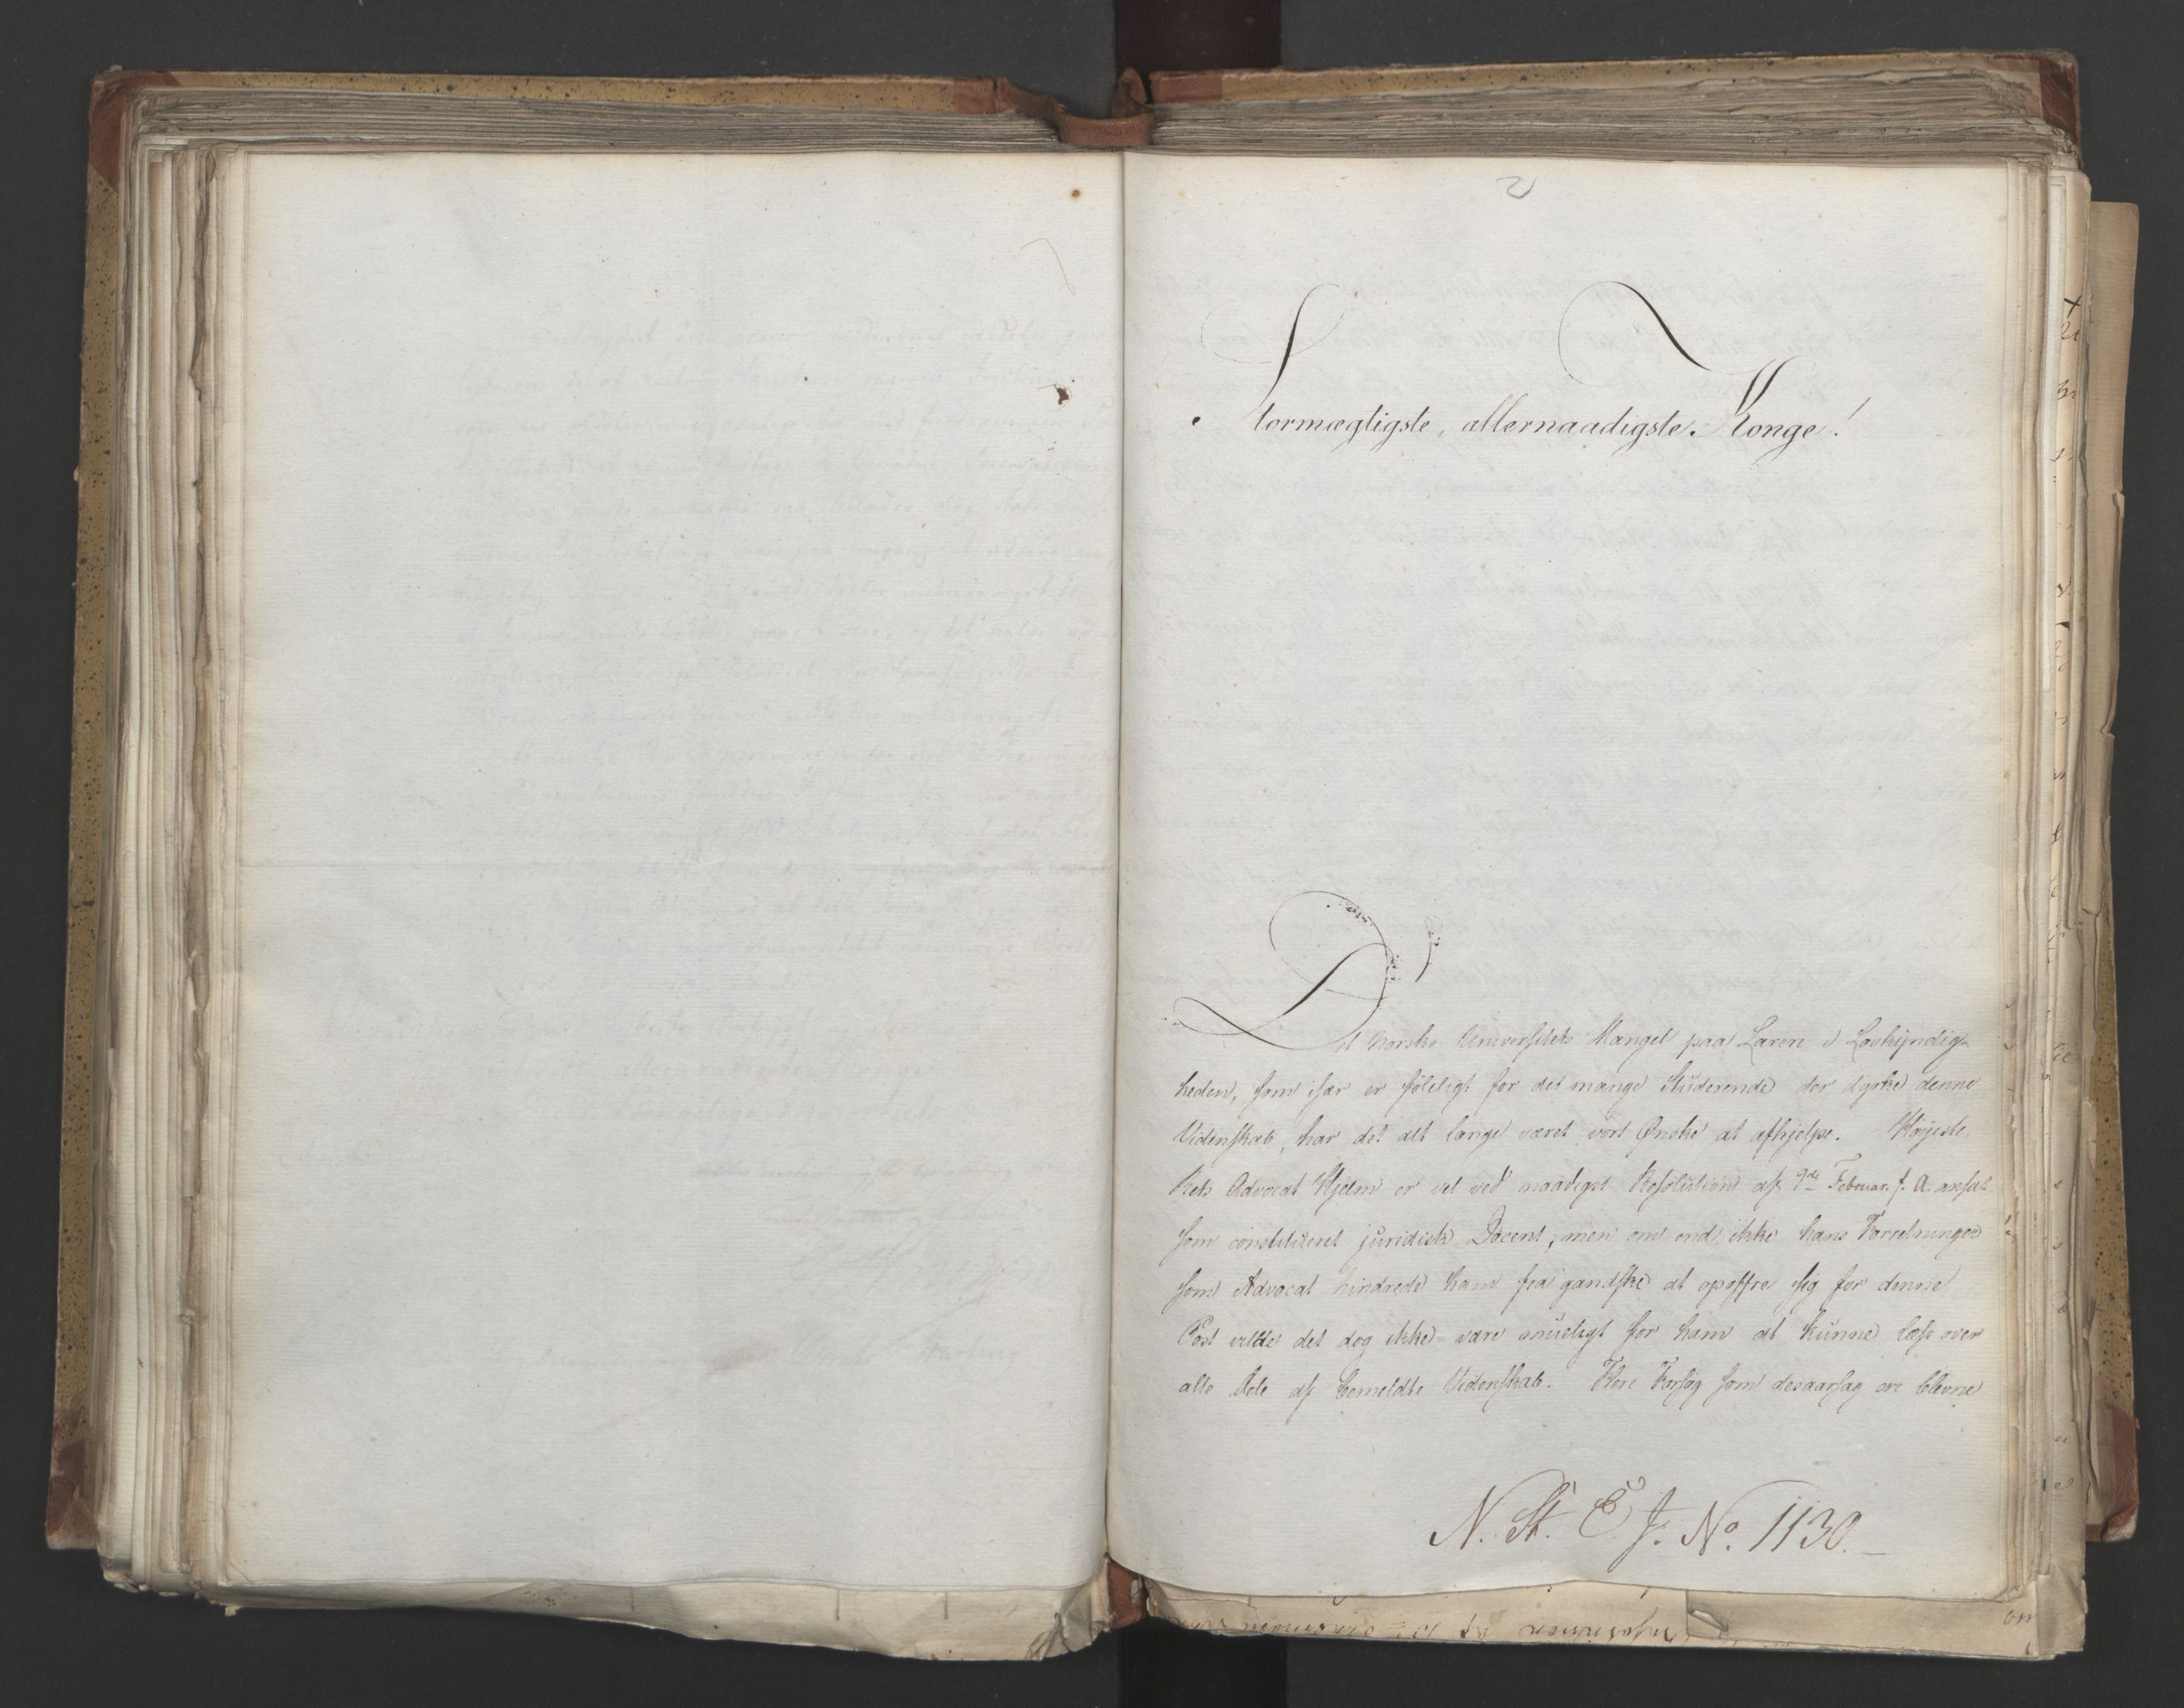 2
Stormægtigste, allernaadigste Konge!
Det norske Universitets Mangel paa Lærere i Lovkyndig-
heden, som især er føleligt for det mange Studerende der dyrke denne
Videnskab, har det alt længe været vort Ønske at afhjelpe. Høyeste
Rets Advocat Hjelm er vel ved naadigst Resolution af 9de Februar f. A. ansat
som constitueret juridisk Docent; men om end ikke hans Forretninger
som Advocat hindrede ham fra gandske at opoffre sig for denne
Post vilde det dog ikke være mueligt for ham at kunne læse over
alle Dele af bemeldte Videnskab. Flere Forsøg som desaarsag ere blevne
N. St. E. J. No. 1130.